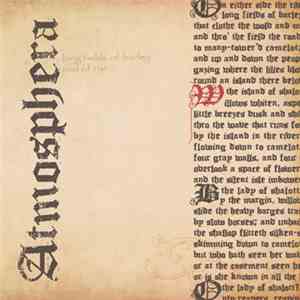 Atmosphera
long fields of barley
and of rye
On either side the ri
long fields of barle
that clothe the wold and m
and thro' the field the road
to many-tower'd camelot
and up and down the peop
gazing where the lilies blo
round an island there belo
the island of shalo
Willows whiten, aspe
little breezes dusk and shi
thro the wave that runs fo
by the island in the river
flowing down to camelot
four gray walls, and four
overlook a space of flower
and the silent isle imbower
the lady of shalott
By the margin, willow
slide the heavy barges tra
by slow horses; and unhai
the shallop flitteth silken-s
skimming down to camelo
but who hath seen her wa
or at the casement seen h
or is she known in all the
the lady of shalott?
Only reapers, reapi